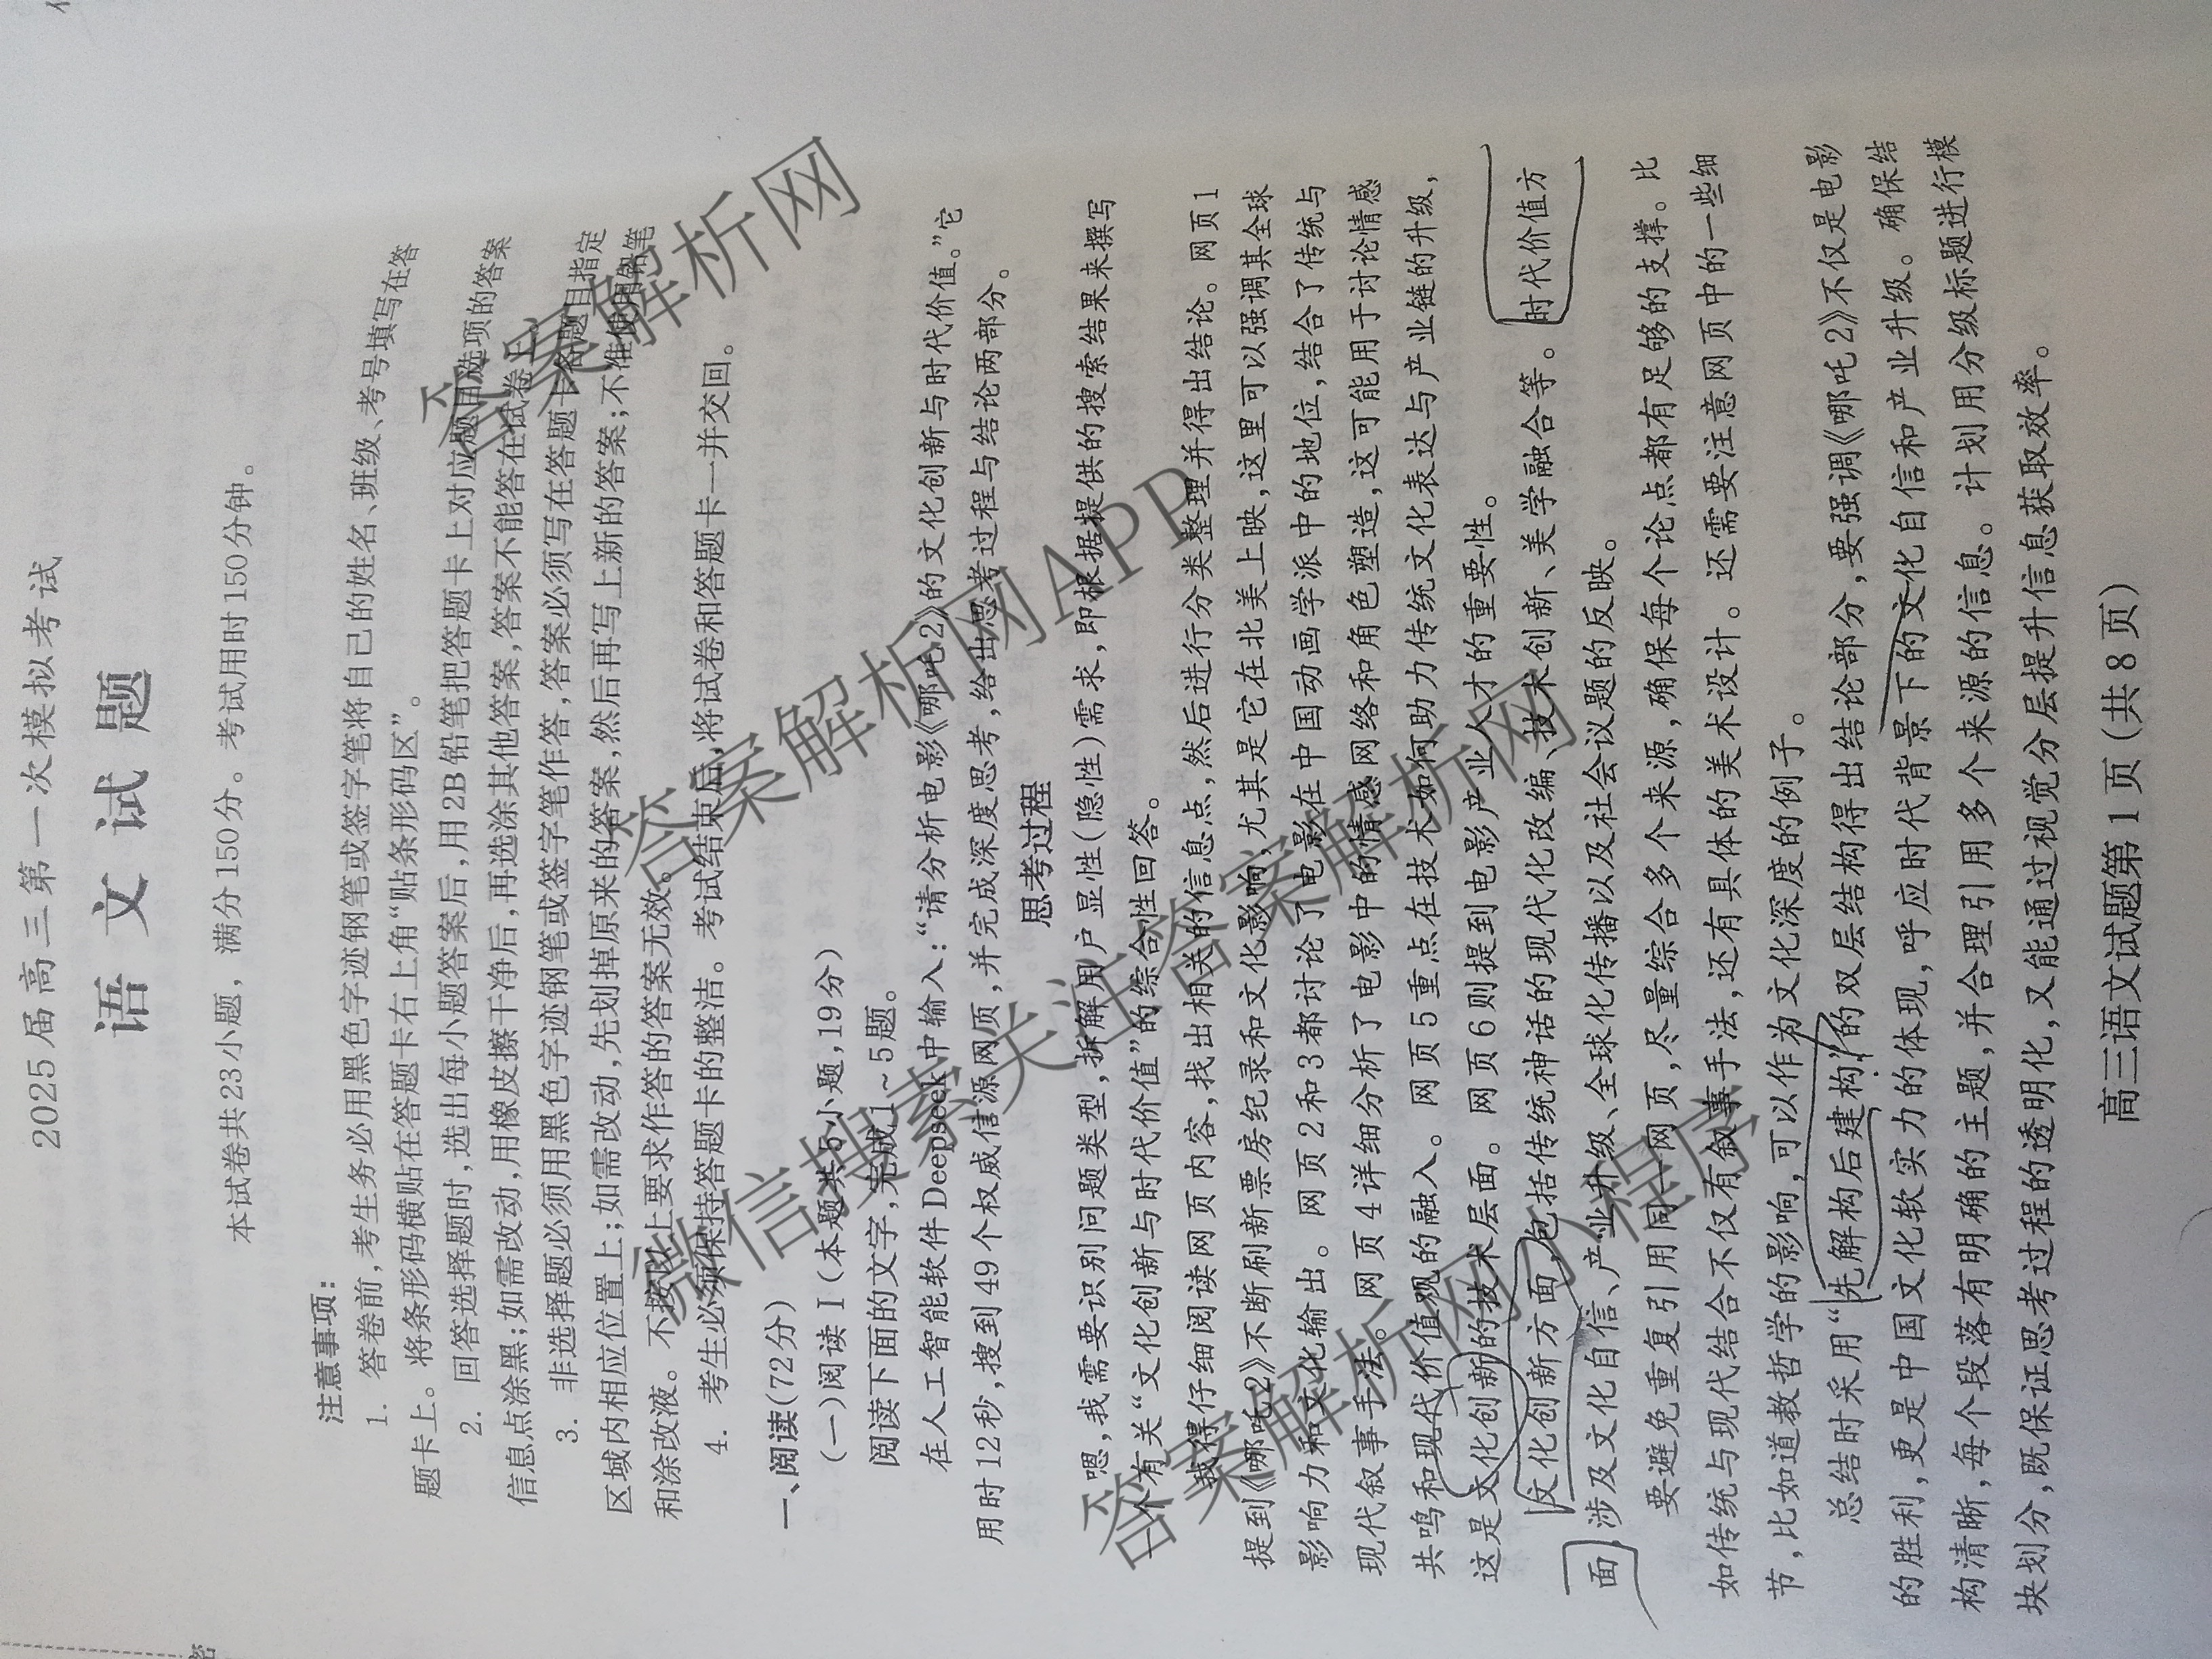 2025届高三第一次模拟考试
语文试题
本试卷共23小题，满分150分。考试用时150分钟。
注意事项：
1. 答卷前,考生务必用黑色字迹钢笔或签字笔将自己的姓名、班级、考号填写在答
题卡上。将条形码横贴在答题卡右上角“贴条形码区”。
2. 回答选择题时,选出每小题答案后,用2B铅笔把答题卡上对应题目选项的答案
信息点涂黑;如需改动,用橡皮擦干净后,再选涂其他答案,答案不能答在试卷上。
3. 非选择题必须用黑色字迹钢笔或签字笔作答,答案必须写在答题卡各题目指定
区域内相应位置上;如需改动,先划掉原来的答案,然后再写上新的答案;不准使用铅笔
和涂改液。不按以上要求作答的答案无效。
4. 考生必须保持答题卡的整洁。考试结束后,将试卷和答题卡一并交回。
一、阅读(72分)
(一)阅读Ⅰ(本题共5小题,19分)
阅读下面的文字,完成1~5题。
在人工智能软件Deepseek中输入:“请分析电影《哪吒2》的文化创新与时代价值。”它
用时12秒,搜到49个权威信源网页,并完成深度思考,给出思考过程与结论两部分。
思考过程
嗯,我需要识别问题类型,拆解用户显性(隐性)需求,即根据提供的搜索结果来撰写
一个有关“文化创新与时代价值”的综合性回答。
我得仔细阅读网页内容,找出相关的信息点,然后进行分类整理并得出结论。网页1
提到《哪吒2》不断刷新票房纪录和文化影响,尤其是它在北美上映,这里可以强调其全球
影响力和文化输出。网页2和3都讨论了电影在中国动画学派中的地位,结合了传统与
现代叙事手法。网页4详细分析了电影中的情感网络和角色塑造,这可能用于讨论情感
共鸣和现代价值观的融入。网页5重点在技术如何助力传统文化表达与产业链的升级,
这是文化创新的技术层面。网页6则提到电影产业人才的重要性。
文化创新方面,包括传统神话的现代化改编、技术创新、美学融合等。时代价值方
面,涉及文化自信、产业升级、全球化传播以及社会议题的反映。
要避免重复引用同一网页,尽量综合多个来源,确保每个论点都有足够的支撑。比
如传统与现代结合不仅有叙事手法,还有具体的美术设计。还需要注意网页中的一些细
节,比如道教哲学的影响,可以作为文化深度的例子。
总结时采用“先解构后建构”的双层结构得出结论部分,要强调《哪吒2》不仅是电影
的胜利,更是中国文化软实力的体现,呼应时代背景下的文化自信和产业升级。确保结
构清晰,每个段落有明确的主题,并合理引用多个来源的信息。计划用分级标题进行模
块划分,既保证思考过程的透明化,又能通过视觉分层提升信息获取效率。
高三语文试题第1页(共8页)
答案解析网
答案解析网APP
答案解析网